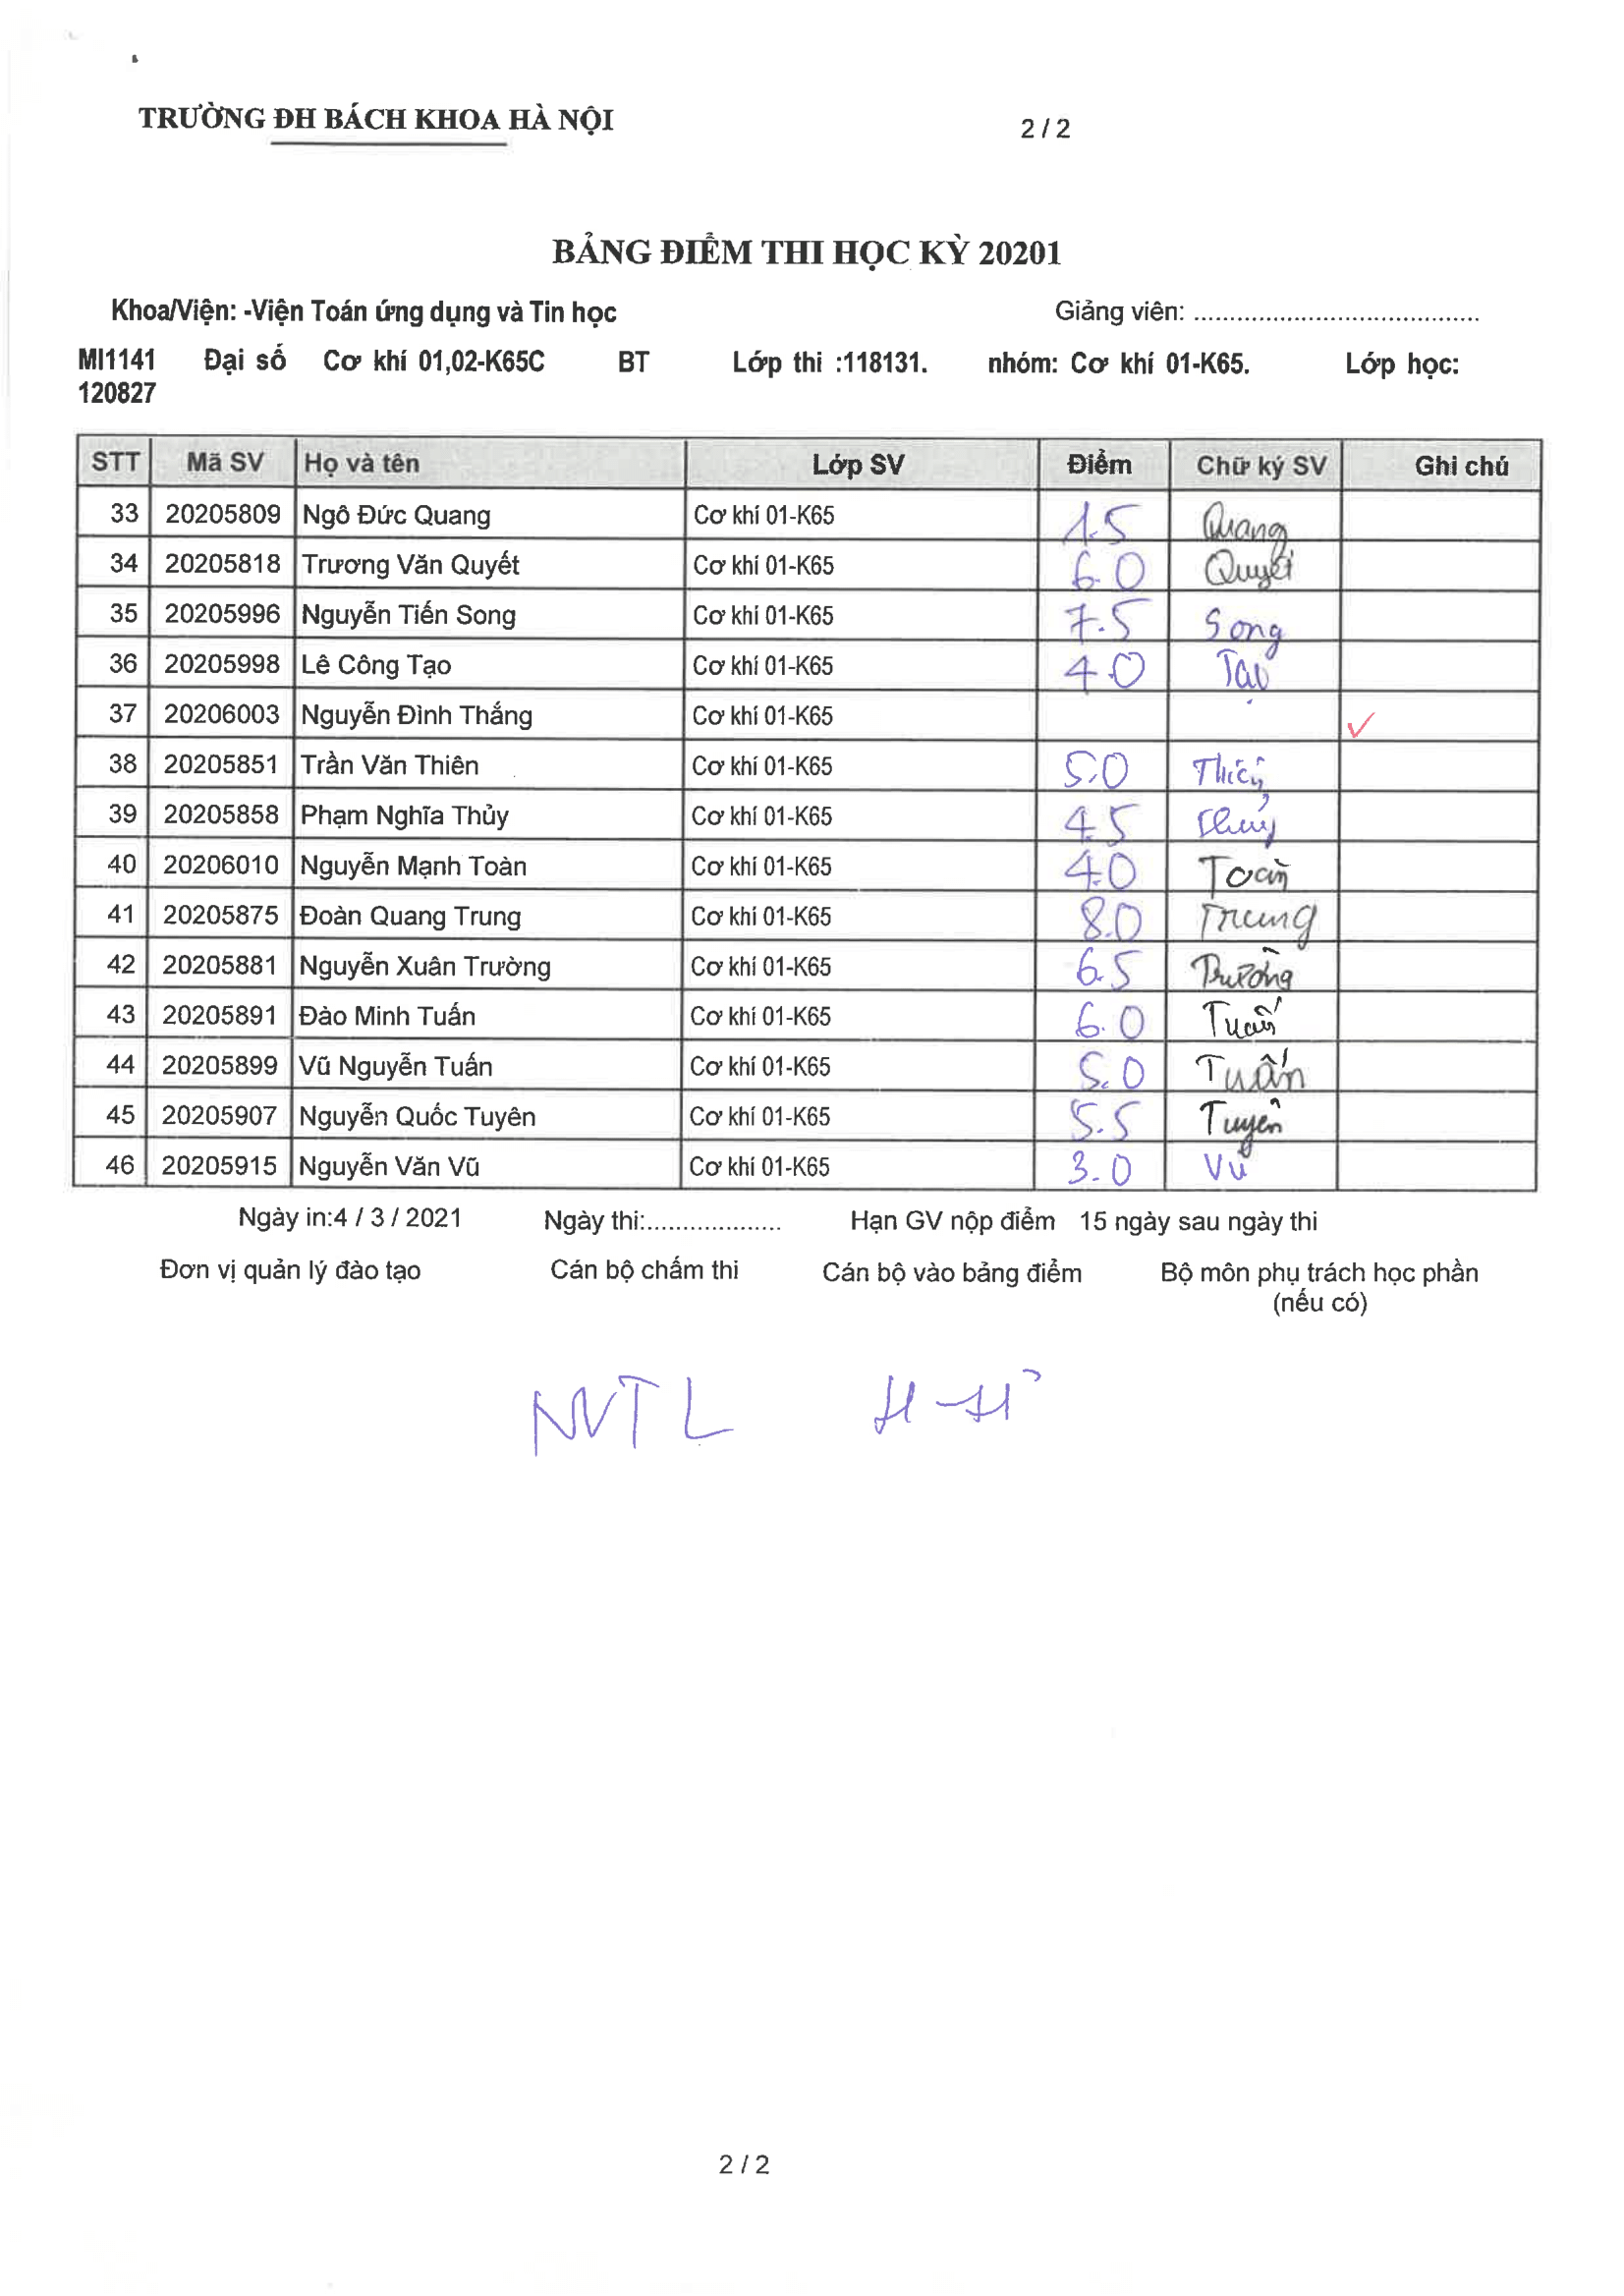 TRƯỜNG ĐH BÁCH KHOA HÀ NỘI 2 / 2
BẢNG ĐIỂM THI HỌC KỲ 20201
Khoa/Viện: -Viện Toán ứng dụng và Tin học Giảng viên: .......................................
MI1141 Đại số Cơ khí 01,02-K65C BT Lớp thi :118131. nhóm: Cơ khí 01-K65. Lớp học:
120827
STT Mã SV Họ và tên Lớp SV Điểm Chữ ký SV Ghi chú
33 20205809 Ngô Đức Quang Cơ khí 01-K65 1.5 Quang
34 20205818 Trương Văn Quyết Cơ khí 01-K65 6.0 Quyết
35 20205996 Nguyễn Tiến Song Cơ khí 01-K65 7.5 Song
36 20205998 Lê Công Tạo Cơ khí 01-K65 4.0 Tạo
37 20206003 Nguyễn Đình Thắng Cơ khí 01-K65 ✓
38 20205851 Trần Văn Thiên Cơ khí 01-K65 5.0 Thiên
39 20205858 Phạm Nghĩa Thủy Cơ khí 01-K65 4.5 Thủy
40 20206010 Nguyễn Mạnh Toàn Cơ khí 01-K65 4.0 Toàn
41 20205875 Đoàn Quang Trung Cơ khí 01-K65 8.0 Trung
42 20205881 Nguyễn Xuân Trường Cơ khí 01-K65 6.5 Trường
43 20205891 Đào Minh Tuấn Cơ khí 01-K65 6.0 Tuấn
44 20205899 Vũ Nguyễn Tuấn Cơ khí 01-K65 5.0 Tuấn
45 20205907 Nguyễn Quốc Tuyên Cơ khí 01-K65 5.5 Tuyên
46 20205915 Nguyễn Văn Vũ Cơ khí 01-K65 3.0 Vũ
Ngày in:4 / 3 / 2021 Ngày thi:................... Hạn GV nộp điểm 15 ngày sau ngày thi
Đơn vị quản lý đào tạo Cán bộ chấm thi Cán bộ vào bảng điểm Bộ môn phụ trách học phần
(nếu có)
NVTL
2 / 2